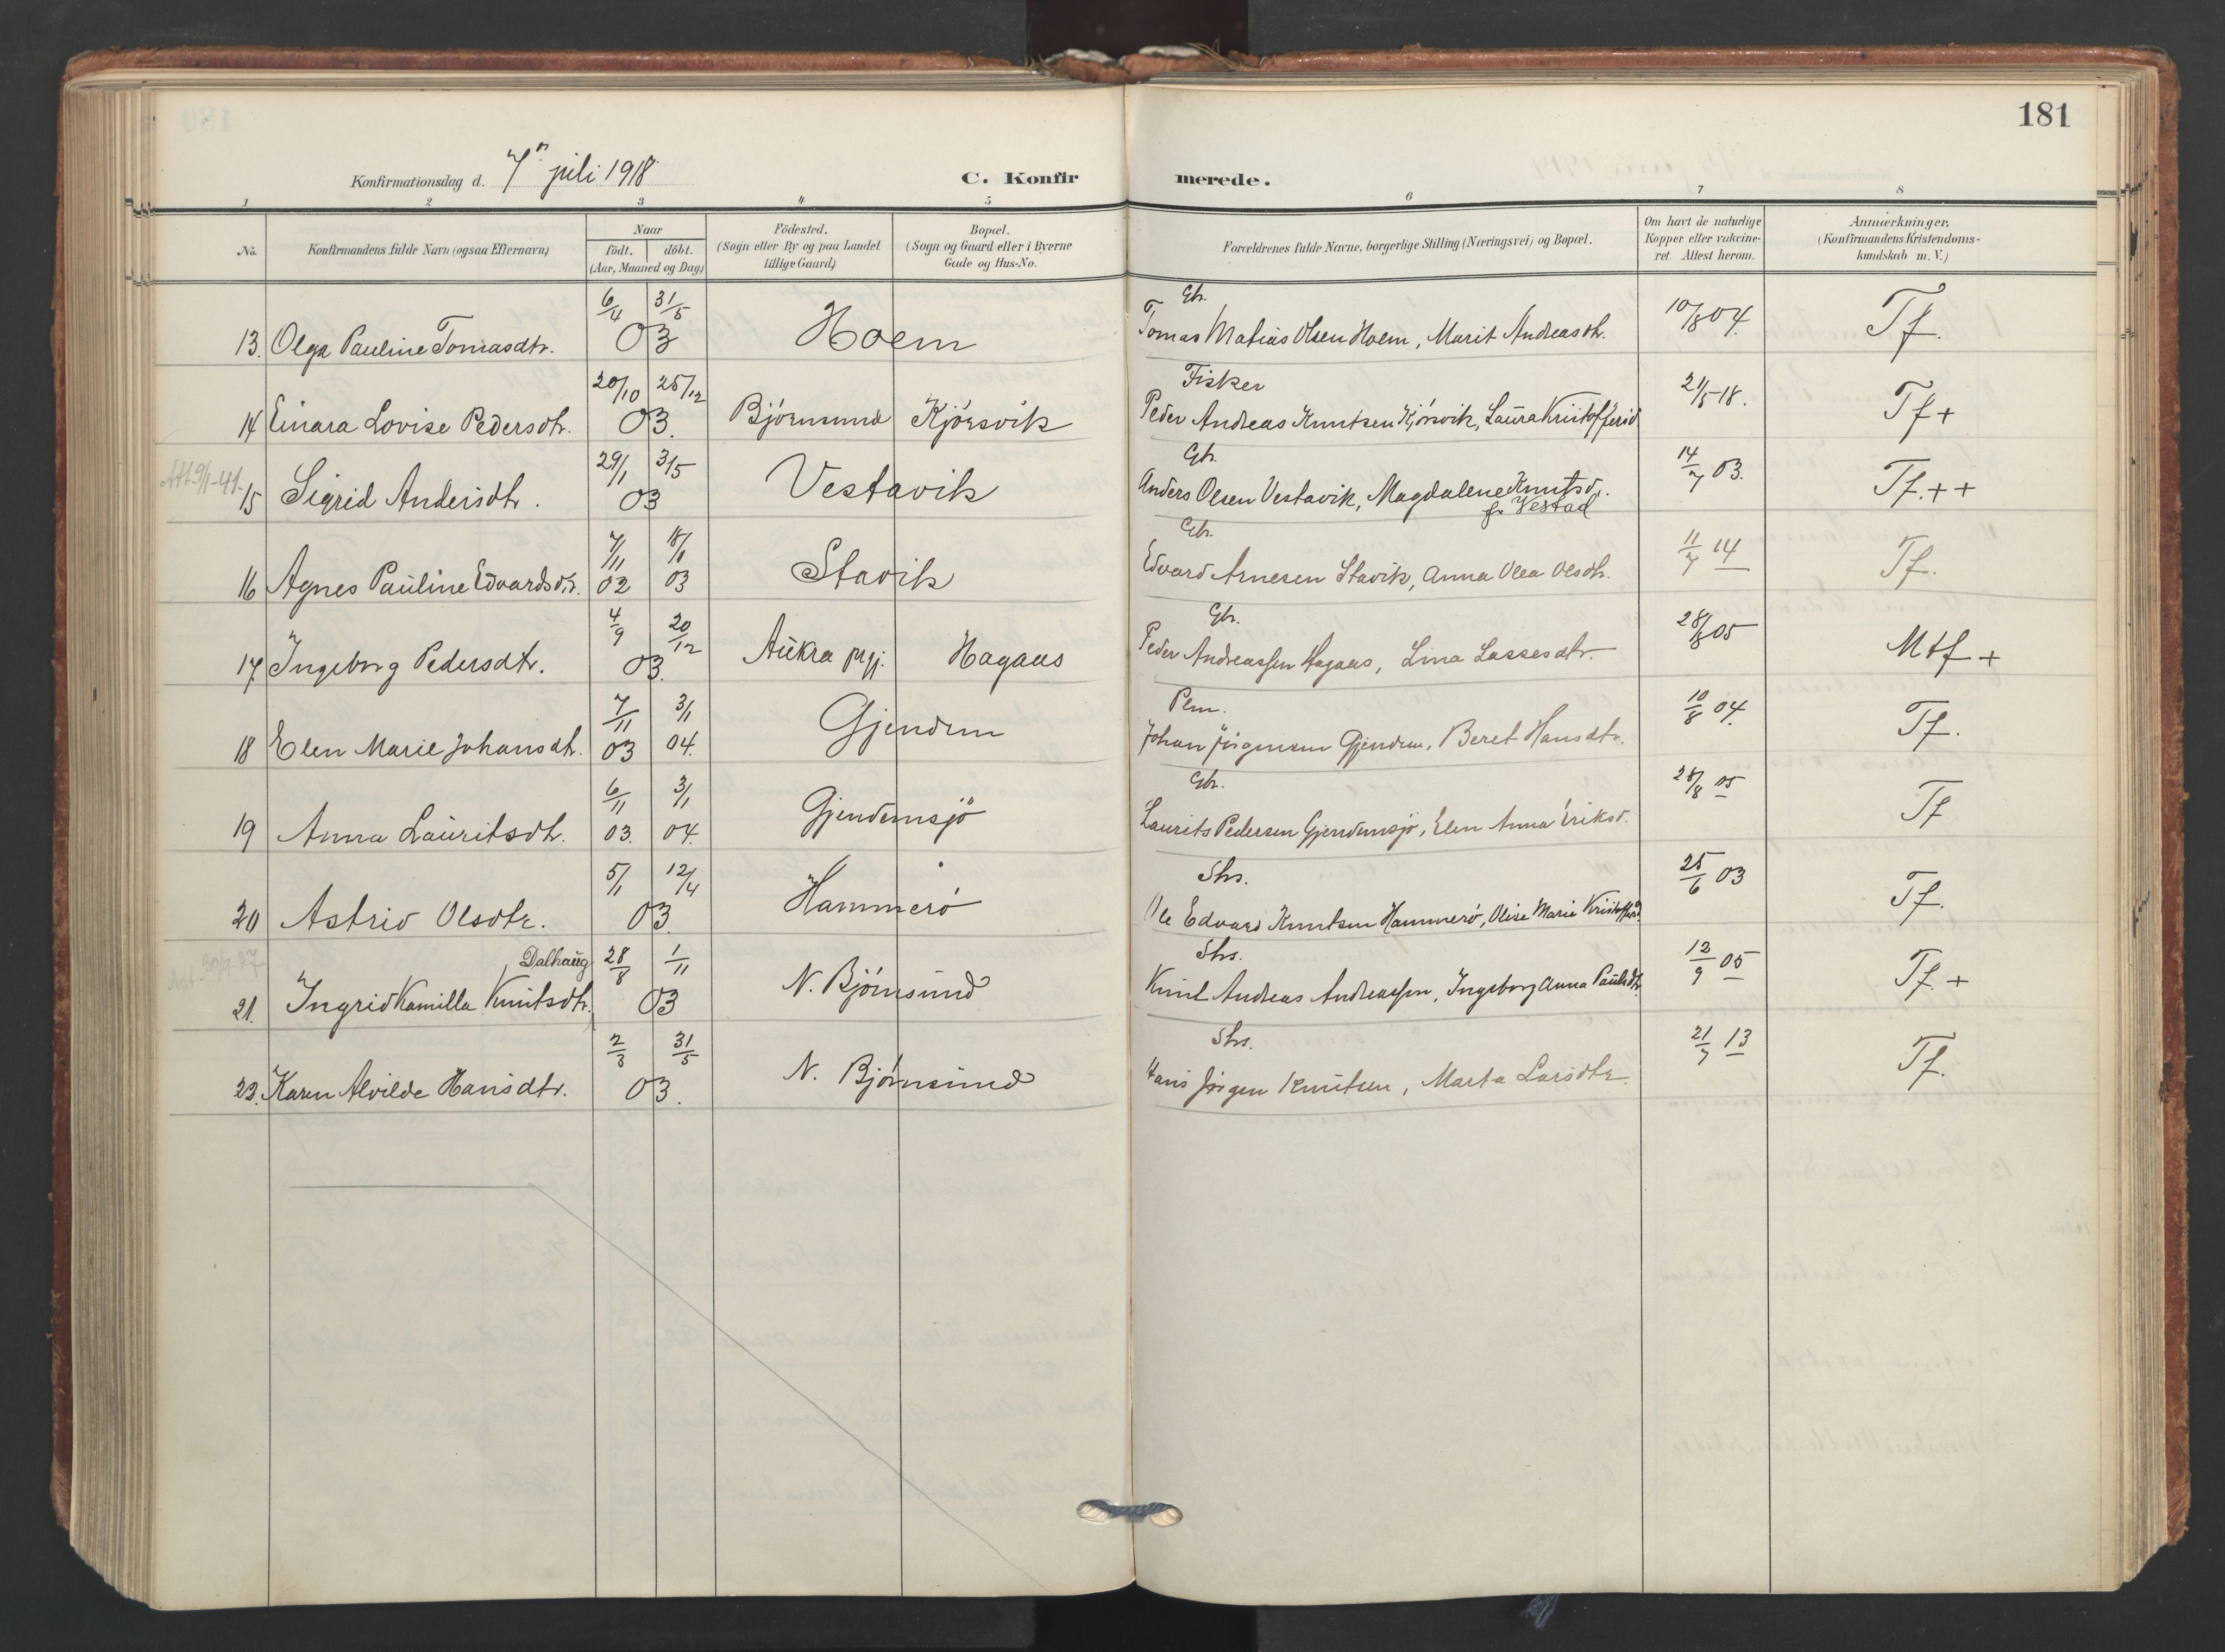 181
Konfirmationsdag d. 7n juli 1918 C. Konfirmerede.
1 2 3 4 5 6 7 8
No. Konfirmandens fulde Navn (ogsaa Efternavn) Naar födt. döbt. (Aar, Maaned og Dag) Födested. (Sogn eller By og paa Landet tillige Gaard) Bopæl. (Sogn og Gaard eller i Byerne Gade og Hus-No. Forældrenes fulde Navne, borgerlige Stilling (Næringsvei) og Bopæl. Om havt de naturlige Kopper eller vakcineret Attest herom. Anmærkninger, (Konfirmandens Kristendomskundskab m. V.)
Gbr.
13. Olga Pauline Tomasdtr. 6/4 31/5 03 Hoem Tomas Matias Olsen Hoem, Marit Andreasdtr. 10/8 04. Tf.
Fisker
14 Einara Lovise Pedersdtr. 20/10 25/12 03. Björnsund Kjörsvik Peder Andreas Knutsen Kjörsvik, Laura Kristoffersd. 21/5-18. Tf+
Att 9/1-41. Gbr.
15 Sigrid Andersdtr. 29/1 3/5 03 Vestavik Anders Olsen Vestavik, Magdalene Knutsd. f. Vestad 14/7 03. Tf.++
Gbr.
16 Agnes Pauline Edvardsdtr. 7/11 02 18/1 03 Stavik Edvard Arnesen Stavik, Anna Olea Olsdtr. 11/7 14 Tf.
Gbr.
17. Ingeborg Pedersdtr. 4/9 20/12 03. Aukra prgj. Hagaas Peder Andreassen Hagaas, Lina Lassesdtr. 28/8 05 Mtf +
Plm.
18 Elen Marie Johansdtr. 7/11 03 3/1 04. Gjendem Johan Jörgensen Gjendem, Beret Hansdtr. 10/8 04. Tf.
Gbr.
19 Anna Lauritsdtr. 6/11 03. 3/1 04. Gjendemsjö Laurits Pedersen Gjendemsjö, Elen Anna Eriksd. 28/8 05 Tf
Shs.
20 Astrid Olsdtr. 5/1 12/4 03. Hammerö Ole Edvard Knutsen Hammerö, Olise Marie Kristoffersd. 25/6 03 Tf.
Att. 30/9-27 Dalhaug Shs.
21. Ingrid Kamilla Knutsdtr. 28/8 1/11 03 N. Björnsund Knut Andreas Andreassen, Ingeborg Anna Paulsdtr. 12/9 05 Tf. +
Shs.
22. Karen Alvilde Hansdtr. 2/3 31/5 03. N. Björnsund Hans Jörgen Knutsen, Marta Larsdtr. 21/7 13 Tf.